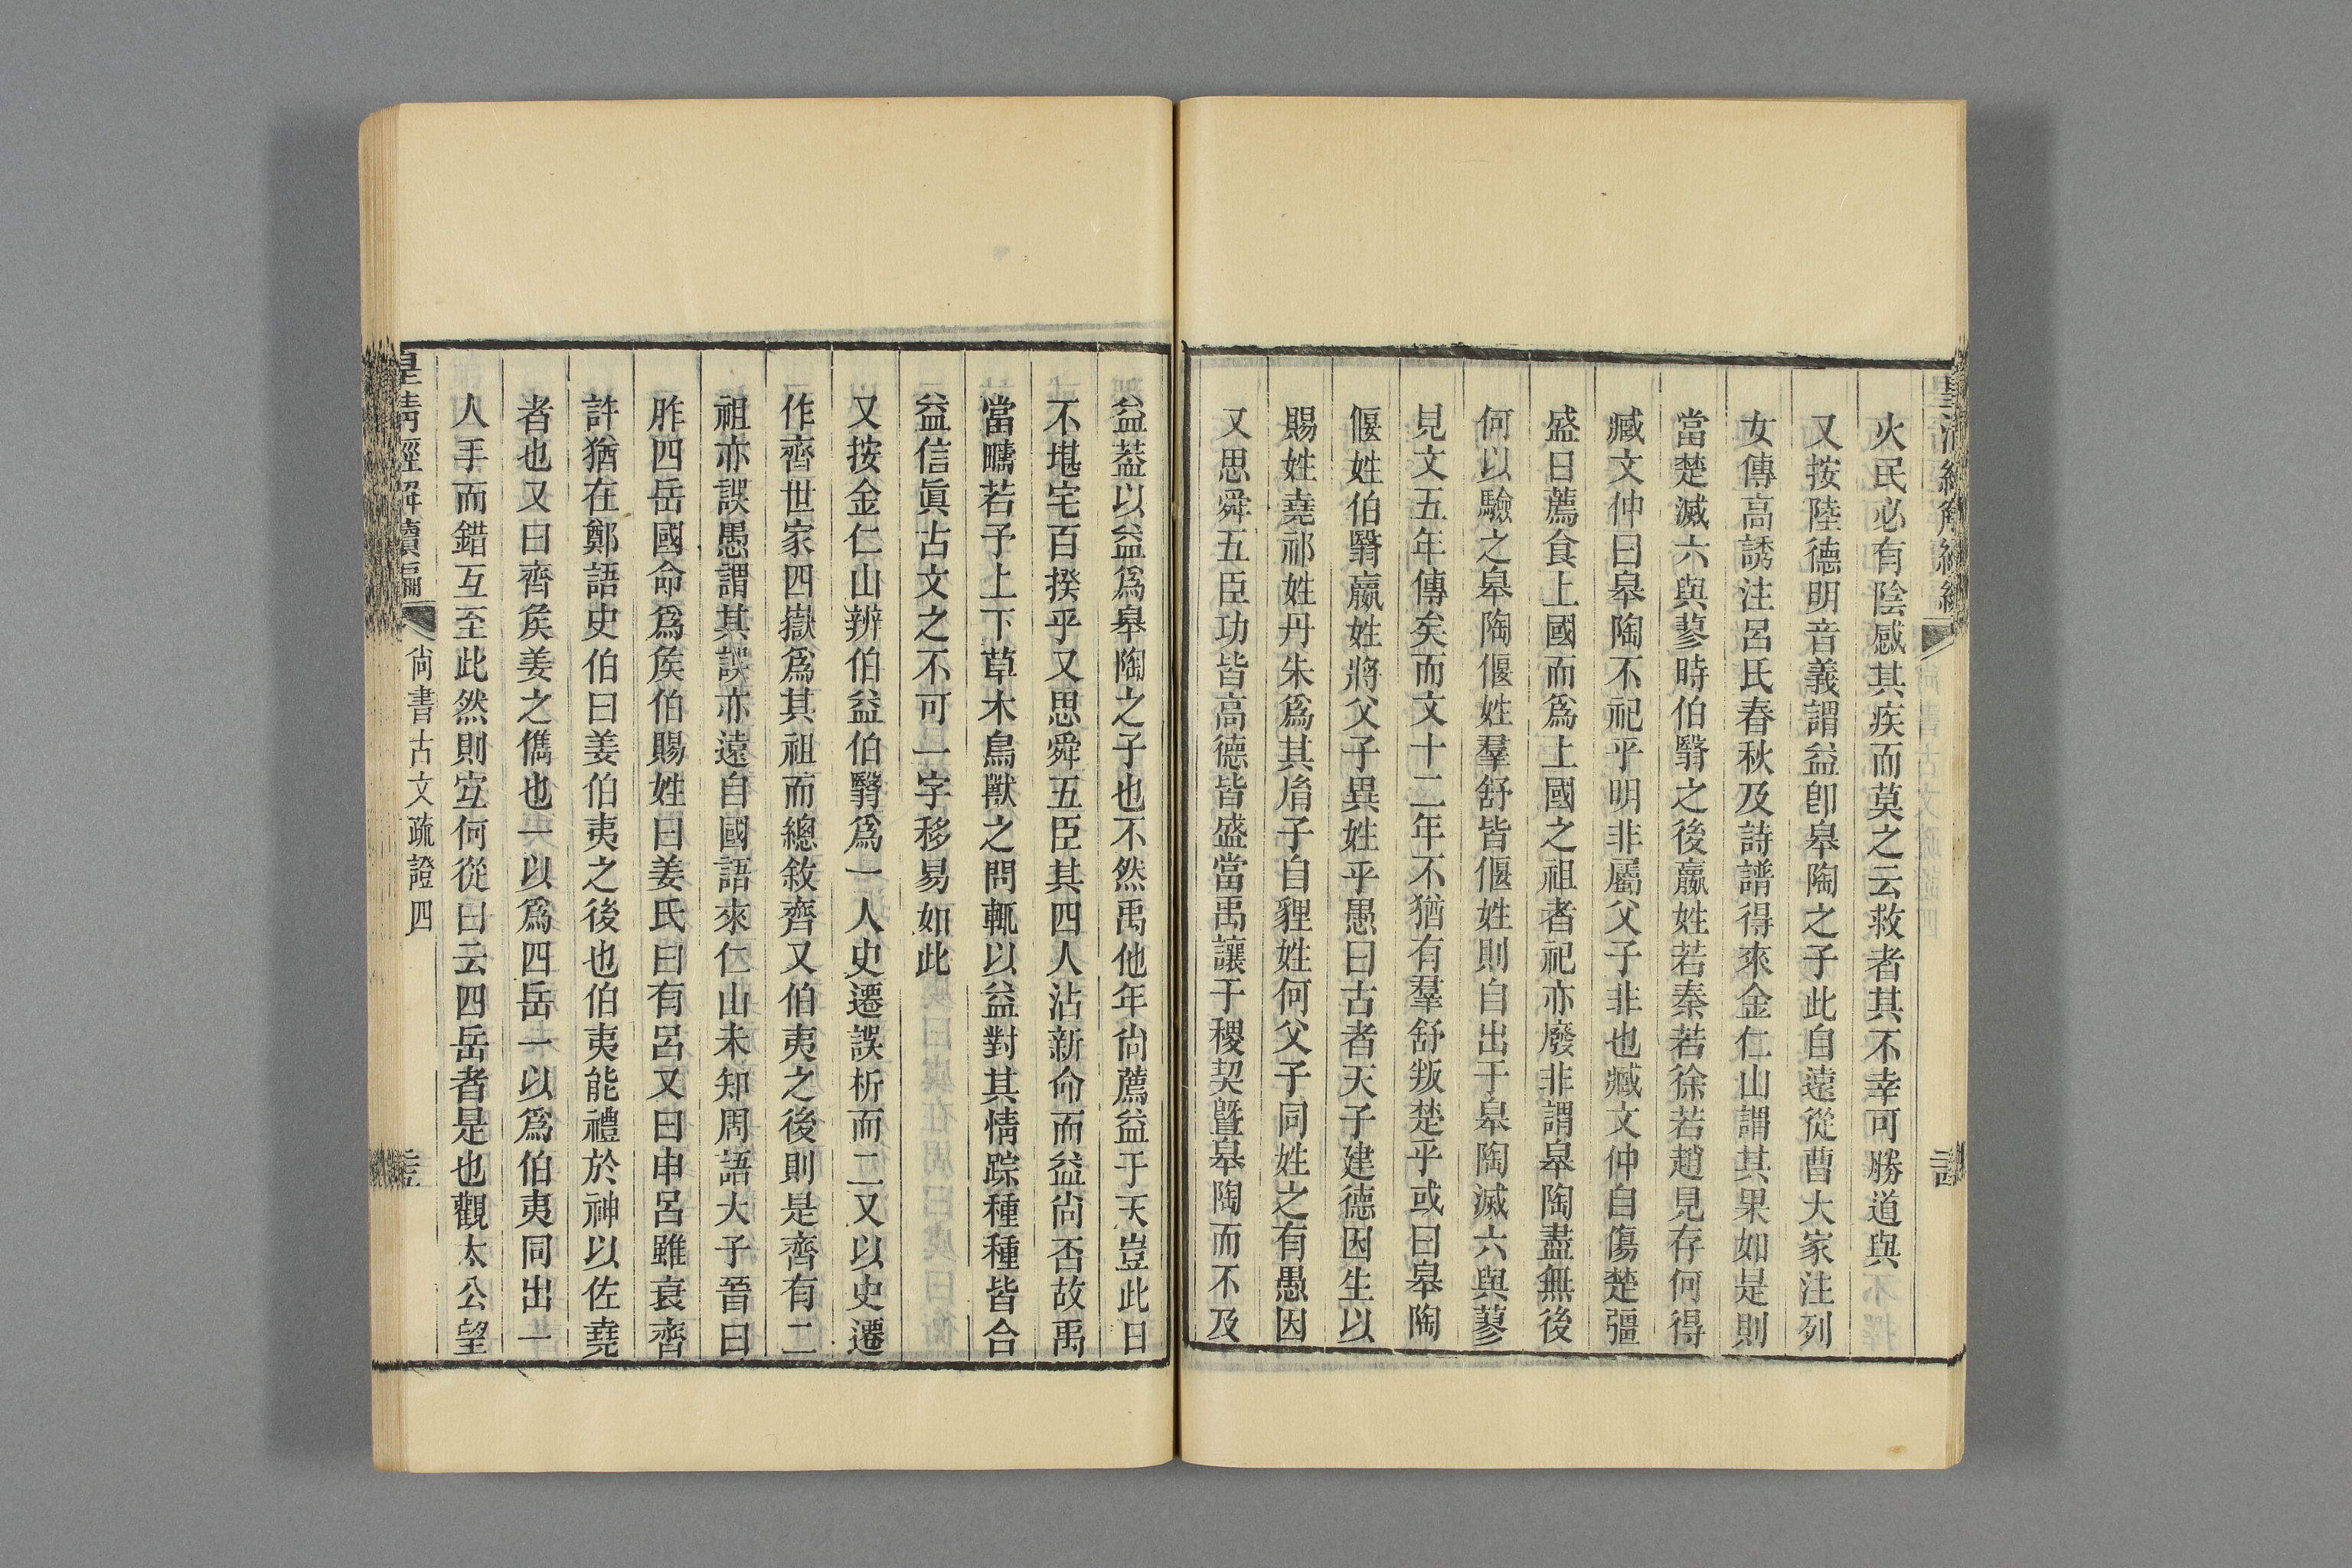 火民必有陰感其疾而莫之云救者其不幸可勝道與
又按陸德明音義謂益卽皋陶之子此自遠從曹大家注列
女傳高誘注呂氏春秋及詩譜得來金仁山謂其果如是則
當楚滅六與蓼時伯翳之後嬴姓若秦若徐若趙見存何得
臧文仲曰皋陶不祀乎明非屬父子非也臧文仲自傷楚彊
盛日薦食上國而爲上國之祖者祀亦廢非謂皋陶盡無後
何以驗之皋陶偃姓羣舒皆偃姓則自出于皋陶滅六與蓼
見文五年傳矣而文十二年不猶有羣舒叛楚乎或曰皋陶
偃姓伯翳嬴姓將父子異姓乎愚曰古者天子建德因生以
賜姓堯祁姓丹朱爲其𦙍子自貍姓何父子同姓之有愚因
又思舜五臣功皆高德皆盛當禹讓于稷契曁皋陶而不及
益葢以益爲皋陶之子也不然禹他年尙薦益于天豈此日
不堪宅百揆乎又思舜五臣其四人沾新命而益尙否故禹
當疇若予上下草木鳥獸之問輒以益對其情踪種種皆合
益信眞古文之不可一字移易如此
又按金仁山辨伯益伯翳爲一人史遷誤析而二又以史遷
作齊世家四嶽爲其祖而總敘齊又伯夷之後則是齊有二
祖亦誤愚謂其誤亦遠自國語來仁山未知周語大子晉曰
胙四岳國命爲矦伯賜姓曰姜氏曰有呂又曰申呂雖衰齊
許猶在鄭語史伯曰姜伯夷之後也伯夷能禮於神以佐堯
者也又曰齊矦姜之儁也一以爲四岳一以爲伯夷同出一
人手而錯互至此然則宜何從曰云四岳者是也觀太公望
皇清經解續編
尙書古文疏證四